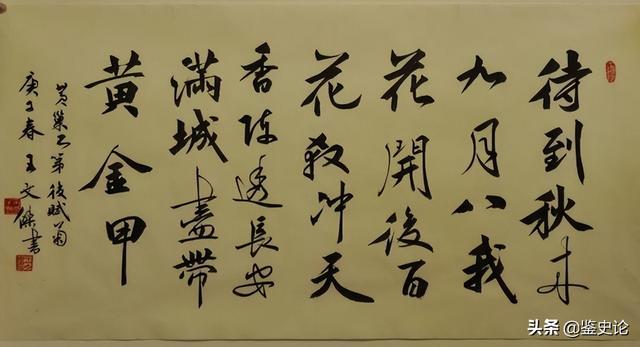 待到秋来
九月八我
花開後百
花殺冲天
香阵透長安
滿城盡帶
黄金甲
黄巢不第後賦菊
庚子春王文書
头条 @鉴史论